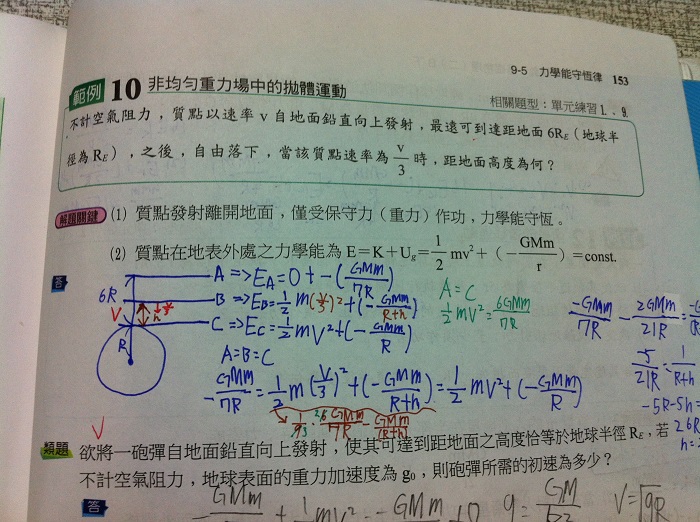 9-5 力學能守恆律 153
範例 10 非均勻重力場中的拋體運動
相關題型：單元練習1、9
不計空氣阻力，質點以速率 v 自地面鉛直向上發射，最遠可到達距地面 6R_E（地球半
徑為 R_E），之後，自由落下，當該質點速率為 v/3 時，距地面高度為何？
解題關鍵 (1) 質點發射離開地面，僅受保守力（重力）作功，力學能守恆。
(2) 質點在地表外處之力學能為 E=K+U_g=1/2 mv²+(-GMm/r)=const.
答
A => E_A=0+-(GMm/7R)
6R B => E_B=1/2 m(v/3)²+(-GMm/R+h)
V h
C => E_C=1/2 mV²+(-GMm/R)
R
A=B=C
A=C
1/2 mV²=6GMm/7R
-GMm/7R - 2GMm/21R =
5/21R = 1/R+h
-5R-5h=
-GMm/7R=1/2 m(V/3)²+(-GMm/R+h)=1/2 mV²+(-GMm/R)
類題 欲將一砲彈自地面鉛直向上發射，使其可達到距地面之高度恰等於地球半徑 R_E，若
不計空氣阻力，地球表面的重力加速度為 g₀，則砲彈所需的初速為多少？
答